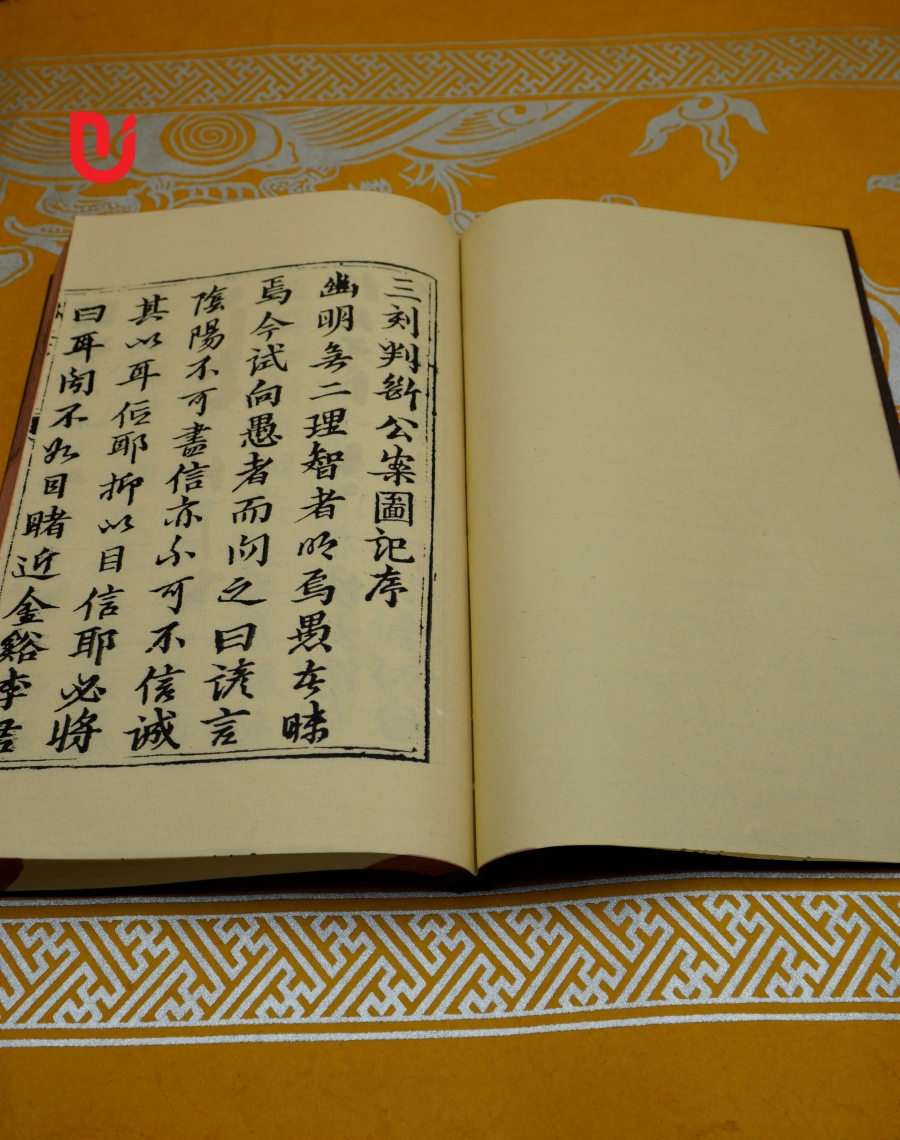 三刻判斷公案圖記序
幽明無二理智者明焉愚者昧
焉今試向愚者而问之曰諺言
陰陽不可盡信亦不可不信誠
其以耳信耶抑以目信耶必將
曰耳闻不如目睹近金谿李君